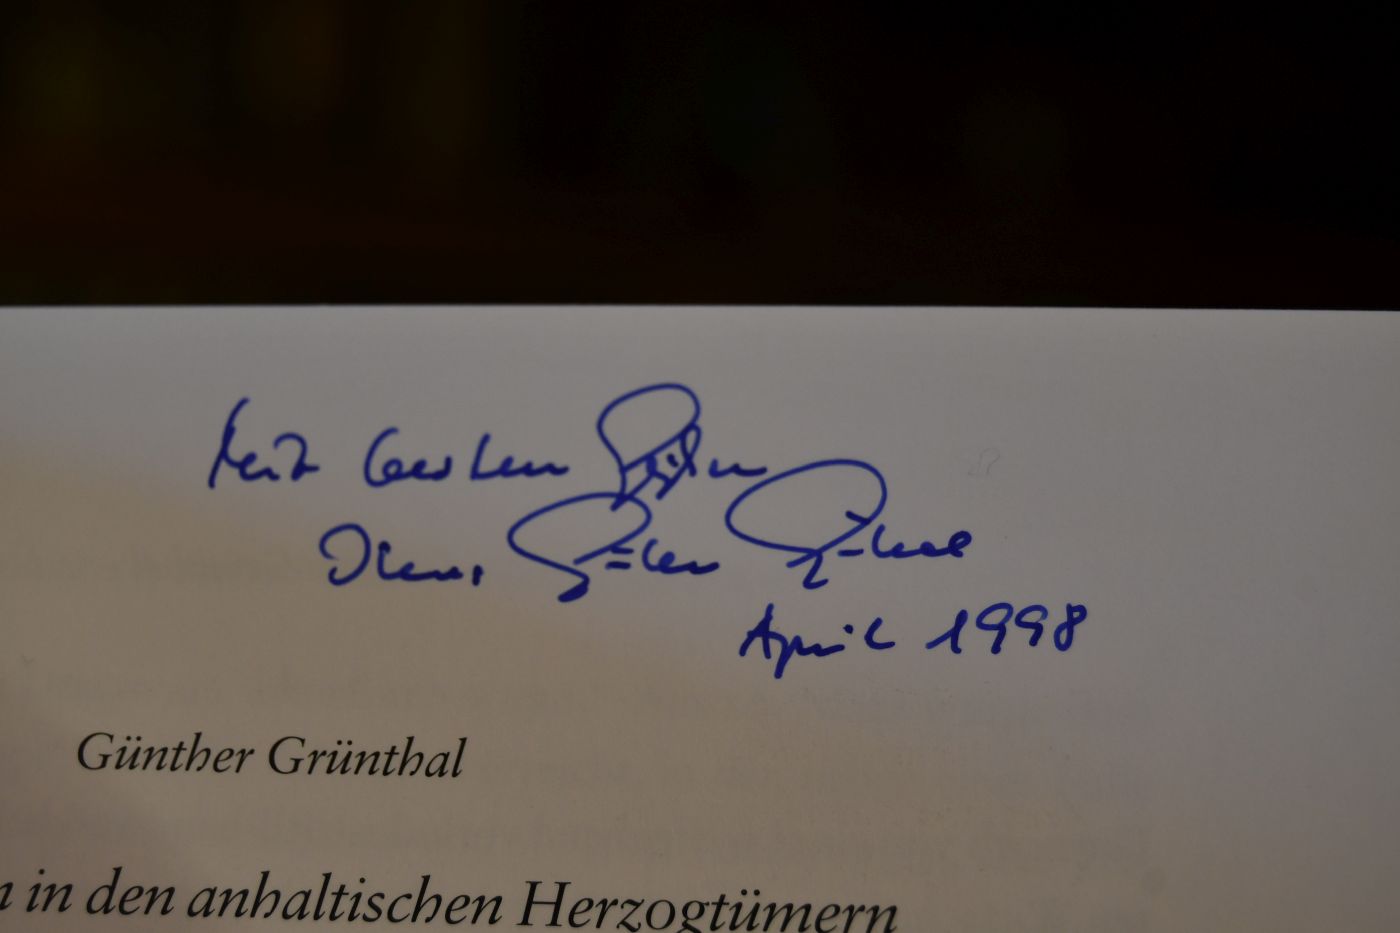 Mit besten Grüßen
Ihr Günther Grünthal
April 1998
Günther Grünthal
in den anhaltischen Herzogtümern